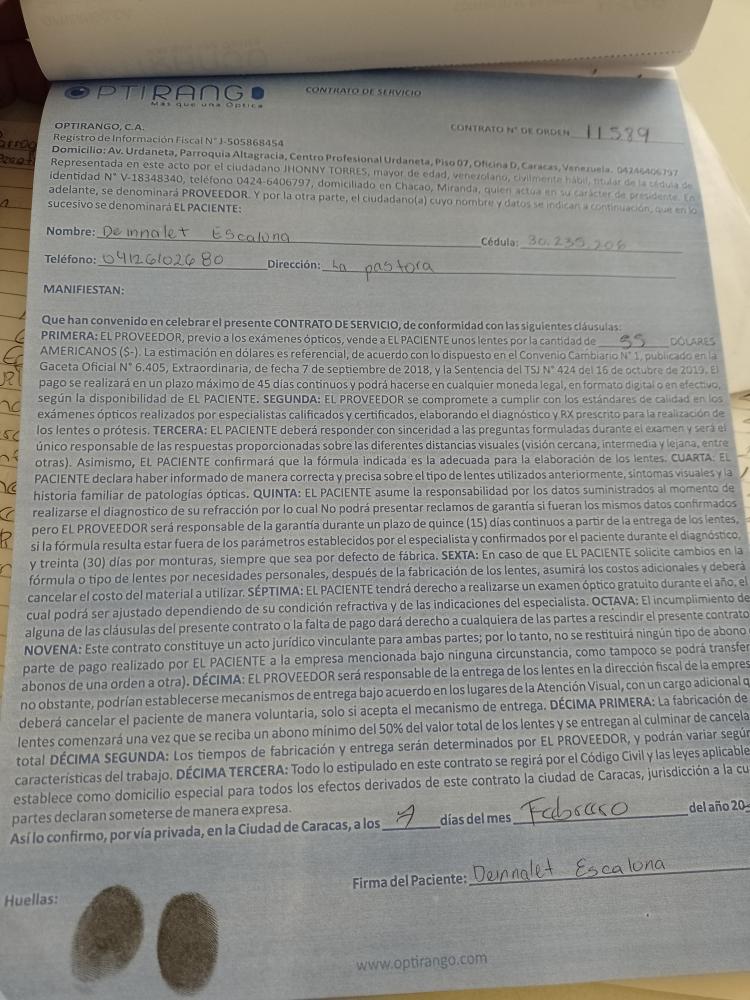 OPTIRANGO
Más que una Óptica
CONTRATO DE SERVICIO
OPTIRANGO, C.A.
CONTRATO N° DE ORDEN 11589
Registro de Información Fiscal N° J-505868454
Domicilio: Av. Urdaneta, Parroquia Altagracia, Centro Profesional Urdaneta, Piso 07, Oficina D, Caracas, Venezuela. 04246406797
Representada en este acto por el ciudadano JHONNY TORRES, mayor de edad, venezolano, civilmente hábil, titular de la cédula de
identidad N° V-18348340, teléfono 0424-6406797, domiciliado en Chacao, Miranda, quien actúa en su carácter de presidente. En
adelante, se denominará PROVEEDOR. Y por la otra parte, el ciudadano(a) cuyo nombre y datos se indican a continuación, que en lo
sucesivo se denominará EL PACIENTE:
Nombre: Deinnalet Escalona Cédula: 30.235.206
Teléfono: 04126102680 Dirección: La pastora
MANIFIESTAN:
Que han convenido en celebrar el presente CONTRATO DE SERVICIO, de conformidad con las siguientes cláusulas:
PRIMERA: EL PROVEEDOR, previo a los exámenes ópticos, vende a EL PACIENTE unos lentes por la cantidad de DÓLARES
AMERICANOS ($-). La estimación en dólares es referencial, de acuerdo con lo dispuesto en el Convenio Cambiario N° 1, publicado en la
Gaceta Oficial N° 6.405, Extraordinaria, de fecha 7 de septiembre de 2018, y la Sentencia del TSJ N° 424 del 16 de octubre de 2019. El
pago se realizará en un plazo máximo de 45 días continuos y podrá hacerse en cualquier moneda legal, en formato digital o en efectivo,
según la disponibilidad de EL PACIENTE. SEGUNDA: EL PROVEEDOR se compromete a cumplir con los estándares de calidad en los
exámenes ópticos realizados por especialistas calificados y certificados, elaborando el diagnóstico y RX prescrito para la realización de
los lentes o prótesis. TERCERA: EL PACIENTE deberá responder con sinceridad a las preguntas formuladas durante el examen y será el
único responsable de las respuestas proporcionadas sobre las diferentes distancias visuales (visión cercana, intermedia y lejana, entre
otras). Asimismo, EL PACIENTE confirmará que la fórmula indicada es la adecuada para la elaboración de los lentes. CUARTA: EL
PACIENTE declara haber informado de manera correcta y precisa sobre el tipo de lentes utilizados anteriormente, síntomas visuales y la
historia familiar de patologías ópticas. QUINTA: EL PACIENTE asume la responsabilidad por los datos suministrados al momento de
realizarse el diagnostico de su refracción por lo cual No podrá presentar reclamos de garantía si fueran los mismos datos confirmados
pero EL PROVEEDOR será responsable de la garantía durante un plazo de quince (15) días continuos a partir de la entrega de los lentes,
si la fórmula resulta estar fuera de los parámetros establecidos por el especialista y confirmados por el paciente durante el diagnóstico,
y treinta (30) días por monturas, siempre que sea por defecto de fábrica. SEXTA: En caso de que EL PACIENTE solicite cambios en la
fórmula o tipo de lentes por necesidades personales, después de la fabricación de los lentes, asumirá los costos adicionales y deberá
cancelar el costo del material a utilizar. SÉPTIMA: EL PACIENTE tendrá derecho a realizarse un examen óptico gratuito durante el año, el
cual podrá ser ajustado dependiendo de su condición refractiva y de las indicaciones del especialista. OCTAVA: El incumplimiento de
alguna de las cláusulas del presente contrato o la falta de pago dará derecho a cualquiera de las partes a rescindir el presente contrato
NOVENA: Este contrato constituye un acto jurídico vinculante para ambas partes; por lo tanto, no se restituirá ningún tipo de abono
parte de pago realizado por EL PACIENTE a la empresa mencionada bajo ninguna circunstancia, como tampoco se podrá transfer
abonos de una orden a otra). DÉCIMA: EL PROVEEDOR será responsable de la entrega de los lentes en la dirección fiscal de la empres
no obstante, podrían establecerse mecanismos de entrega bajo acuerdo en los lugares de la Atención Visual, con un cargo adicional q
deberá cancelar el paciente de manera voluntaria, solo si acepta el mecanismo de entrega. DÉCIMA PRIMERA: La fabricación de
lentes comenzará una vez que se reciba un abono mínimo del 50% del valor total de los lentes y se entregan al culminar de cancela
total DÉCIMA SEGUNDA: Los tiempos de fabricación y entrega serán determinados por EL PROVEEDOR, y podrán variar según
características del trabajo. DÉCIMA TERCERA: Todo lo estipulado en este contrato se regirá por el Código Civil y las leyes aplicable
establece como domicilio especial para todos los efectos derivados de este contrato la ciudad de Caracas, jurisdicción a la cu
partes declaran someterse de manera expresa.
Así lo confirmo, por vía privada, en la Ciudad de Caracas, a los 7 días del mes Febrero del año 20
Firma del Paciente: Deinnalet Escalona
Huellas:
www.optirango.com